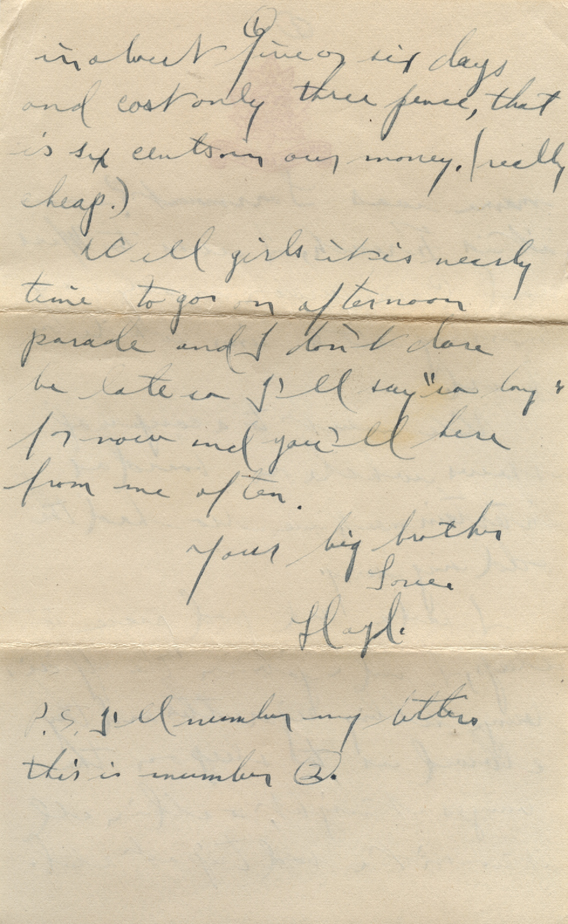 in about five or six days
and cost only three pence, that
is six cents in our money. (really
cheap.)
Well girls it is nearly
time to go on afternoon
parade and I don't dare
be late so I'll say "so long"
for now and you'll here
from me often.
Your big brother
Love
P.S. I'll number my letters
this is number 2.